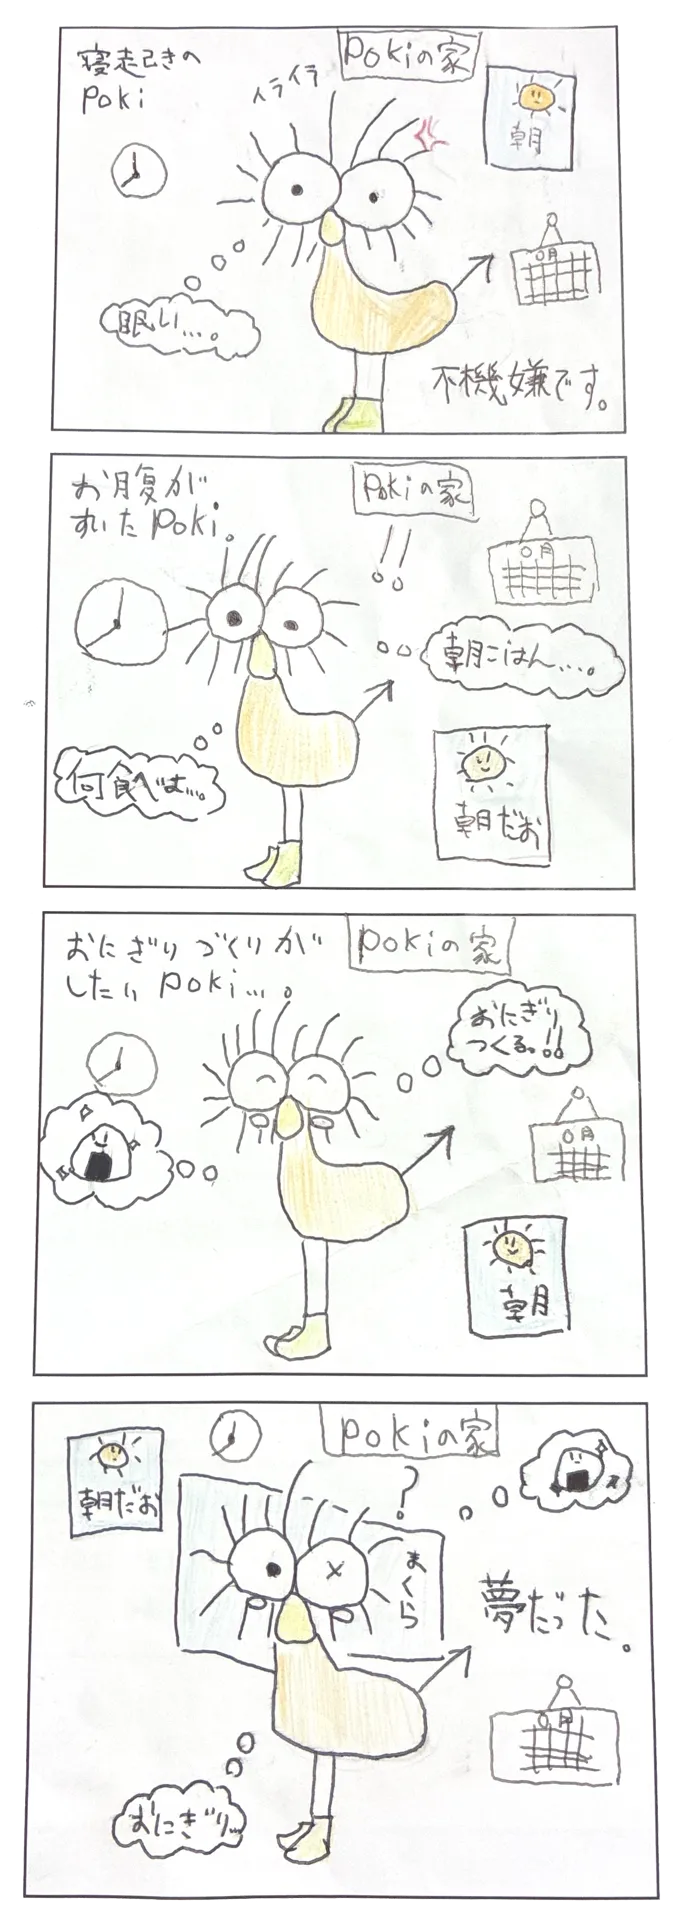 寝起きの
Poki
イライラ
Pokiの家
朝
〇月
眠い...。
不機嫌です。
お腹が
すいたPoki。
Pokiの家
〇月
朝ごはん....。
何食べよ...。
朝だお
おにぎりづくりが
したいPoki...。
Pokiの家
おにぎり
つくるっ!!
〇月
朝
Pokiの家
朝だお
?
まくら
夢だった。
〇月
おにぎり...